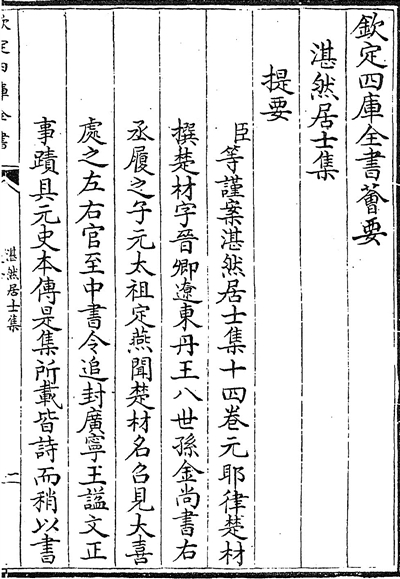 欽定四庫全書薈要
湛然居士集
提要
臣等謹案湛然居士集十四卷元耶律楚材
撰楚材字晉卿遼東丹王八世孫金尚書右
丞履之子元太祖定燕聞楚材名召見大喜
處之左右官至中書令追封廣寧王謚文正
事蹟具元史本傳是集所載皆詩而稍以書
欽定四庫全書
湛然居士集
一